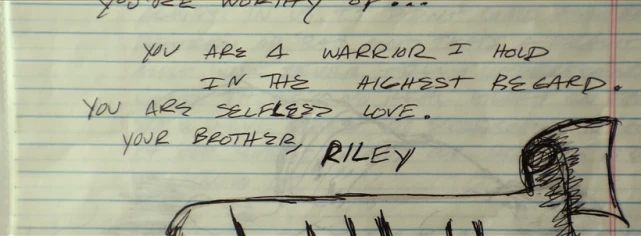 YOU'RE WORTHY OF...
YOU ARE A WARRIOR I HOLD
IN THE HIGHEST REGARD.
YOU ARE SELFLESS LOVE.
YOUR BROTHER, RILEY